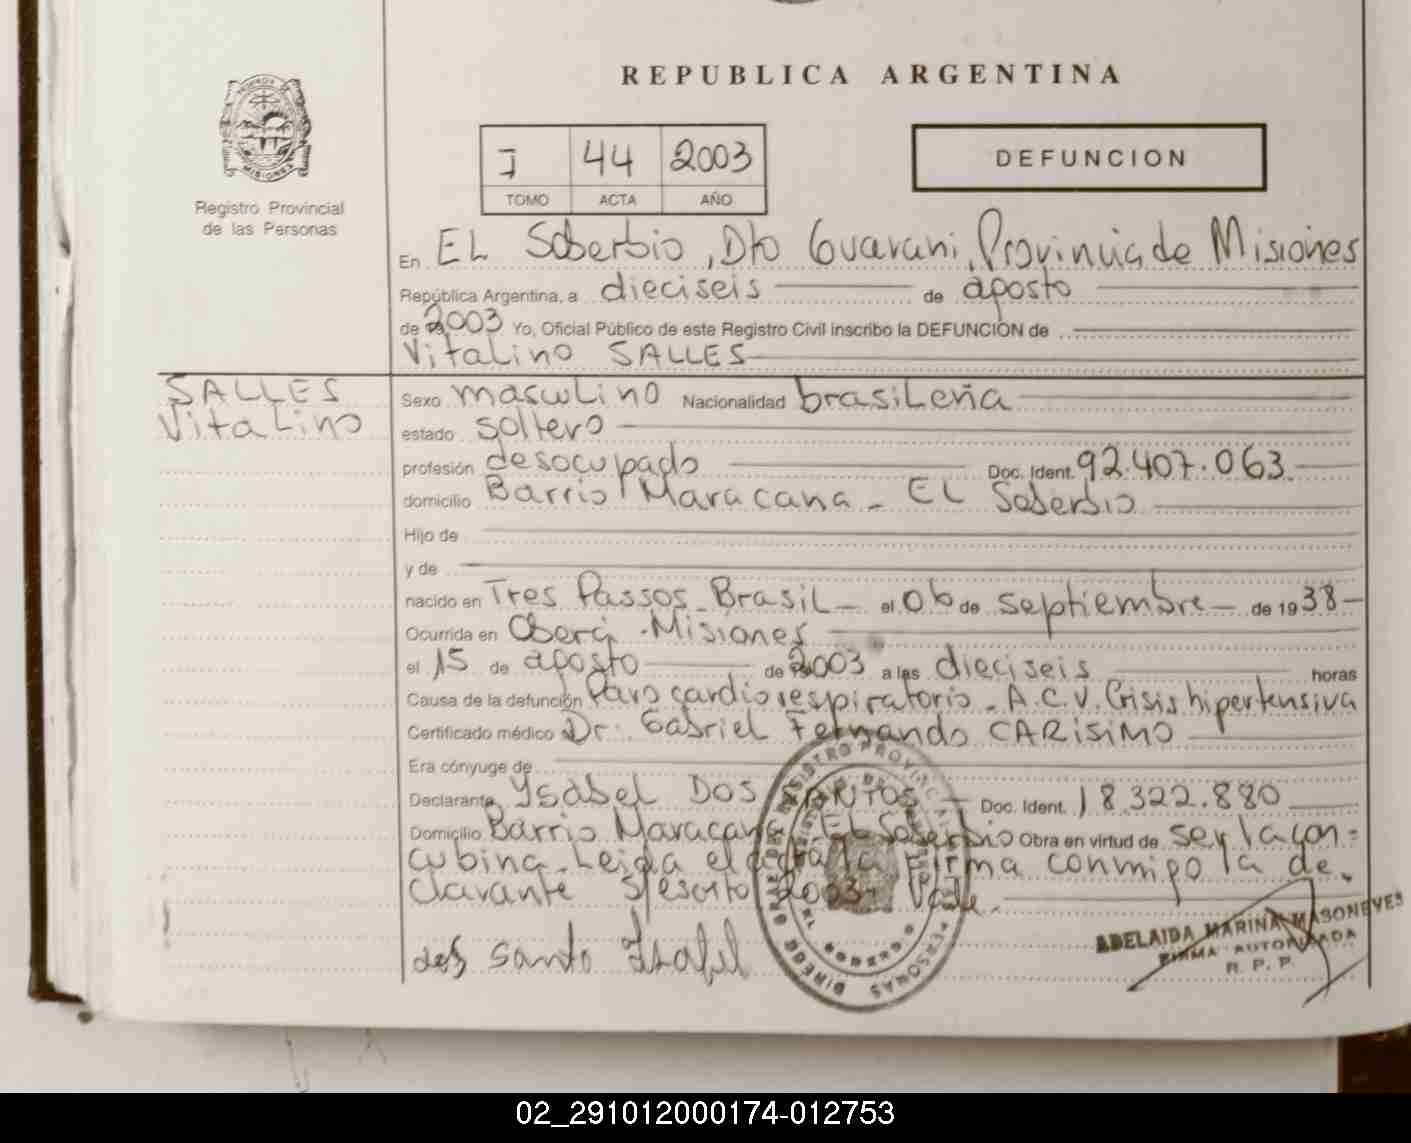 REPUBLICA ARGENTINA
I 44 2003
TOMO ACTA AÑO
DEFUNCION
MISIONES
Registro Provincial
de las Personas
En EL Soberbio, Dto Guarani, Provincia de Misiones
República Argentina, a dieciseis de agosto
de 2003 Yo, Oficial Público de este Registro Civil inscribo la DEFUNCIÓN de
Vitalino SALLES
SALLES
Vitalino
Sexo masculino Nacionalidad brasileña
estado soltero
profesión desocupado Doc. Ident. 92.407.063.
domicilio Barrio Maracana - EL Soberbio
Hijo de
y de
nacido en Tres Passos - Brasil - el 06 de septiembre - de 19 38 -
Ocurrida en Oberá - Misiones
el 15 de agosto de 2003 a las dieciseis horas
Causa de la defunción Paro cardiorespiratorio - A.C.V. Crisis hipertensiva
Certificado médico Dr. Gabriel Fernando CARISIMO
Era cónyuge de
Declarante Ysabel DOS SANTOS - Doc. Ident. 18.322.880
Domicilio Barrio Maracana EL Soberbio Obra en virtud de ser la con-
cubina. Leida el acta la firma conmigo la de-
clarante S/escrito 2003. Vale.
dos santo Izabel
ADELAIDA MARINA MASONEVES
FIRMA AUTORIZADA
R. P. P.
02_291012000174-012753